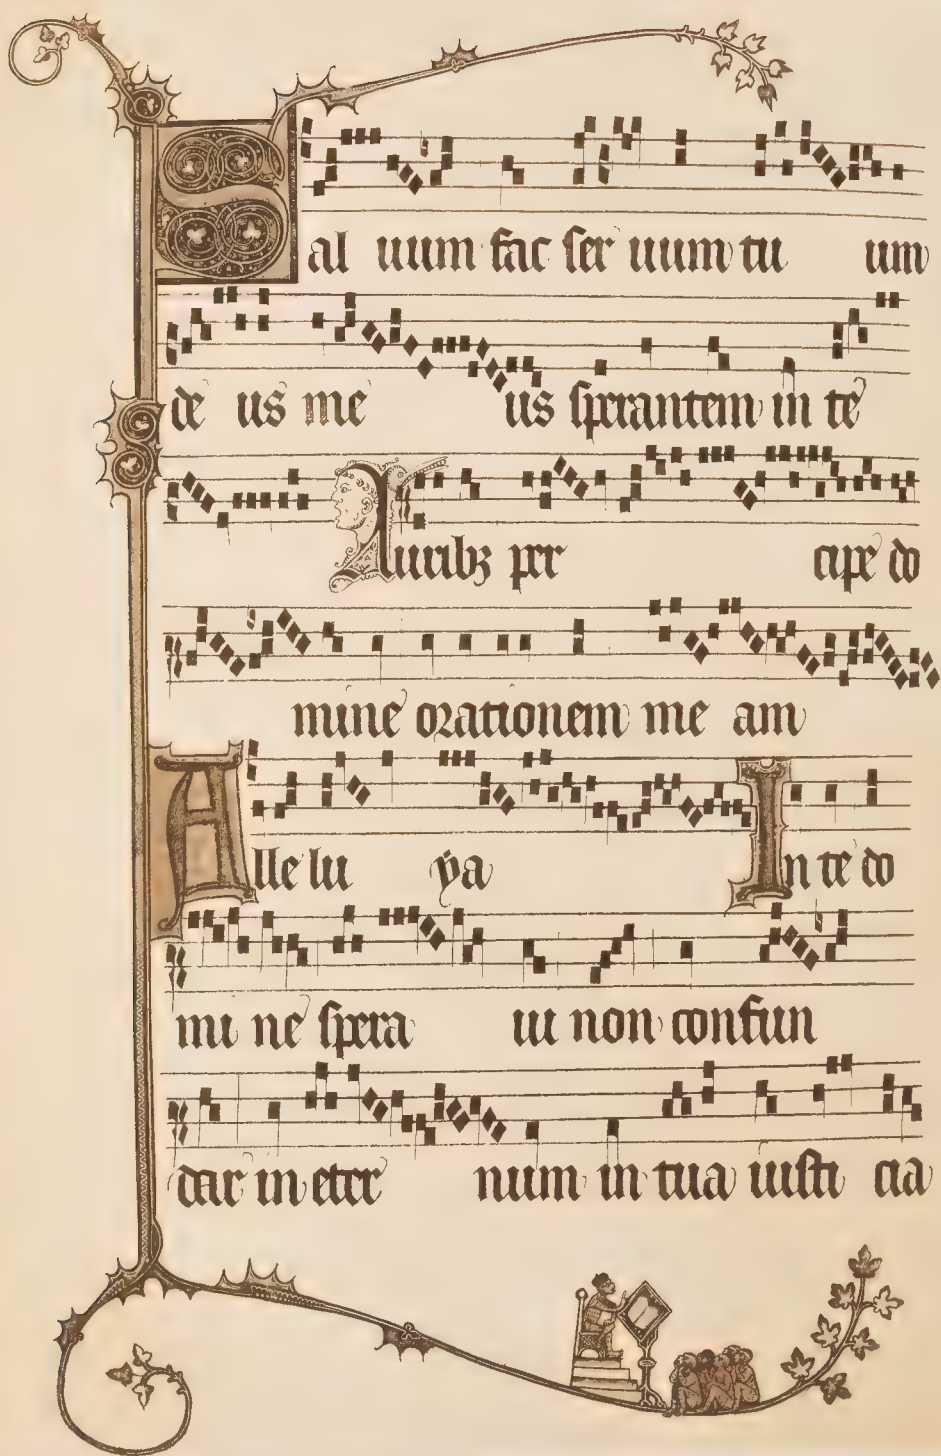 Sal uum fac ser uum tu um
de us me us sperantem in te
Auribꝫ per cipe do
mine orationem me am
Alle lu ya In te do
mi ne spera ui non confun
dar in eter num in tua iusti cia